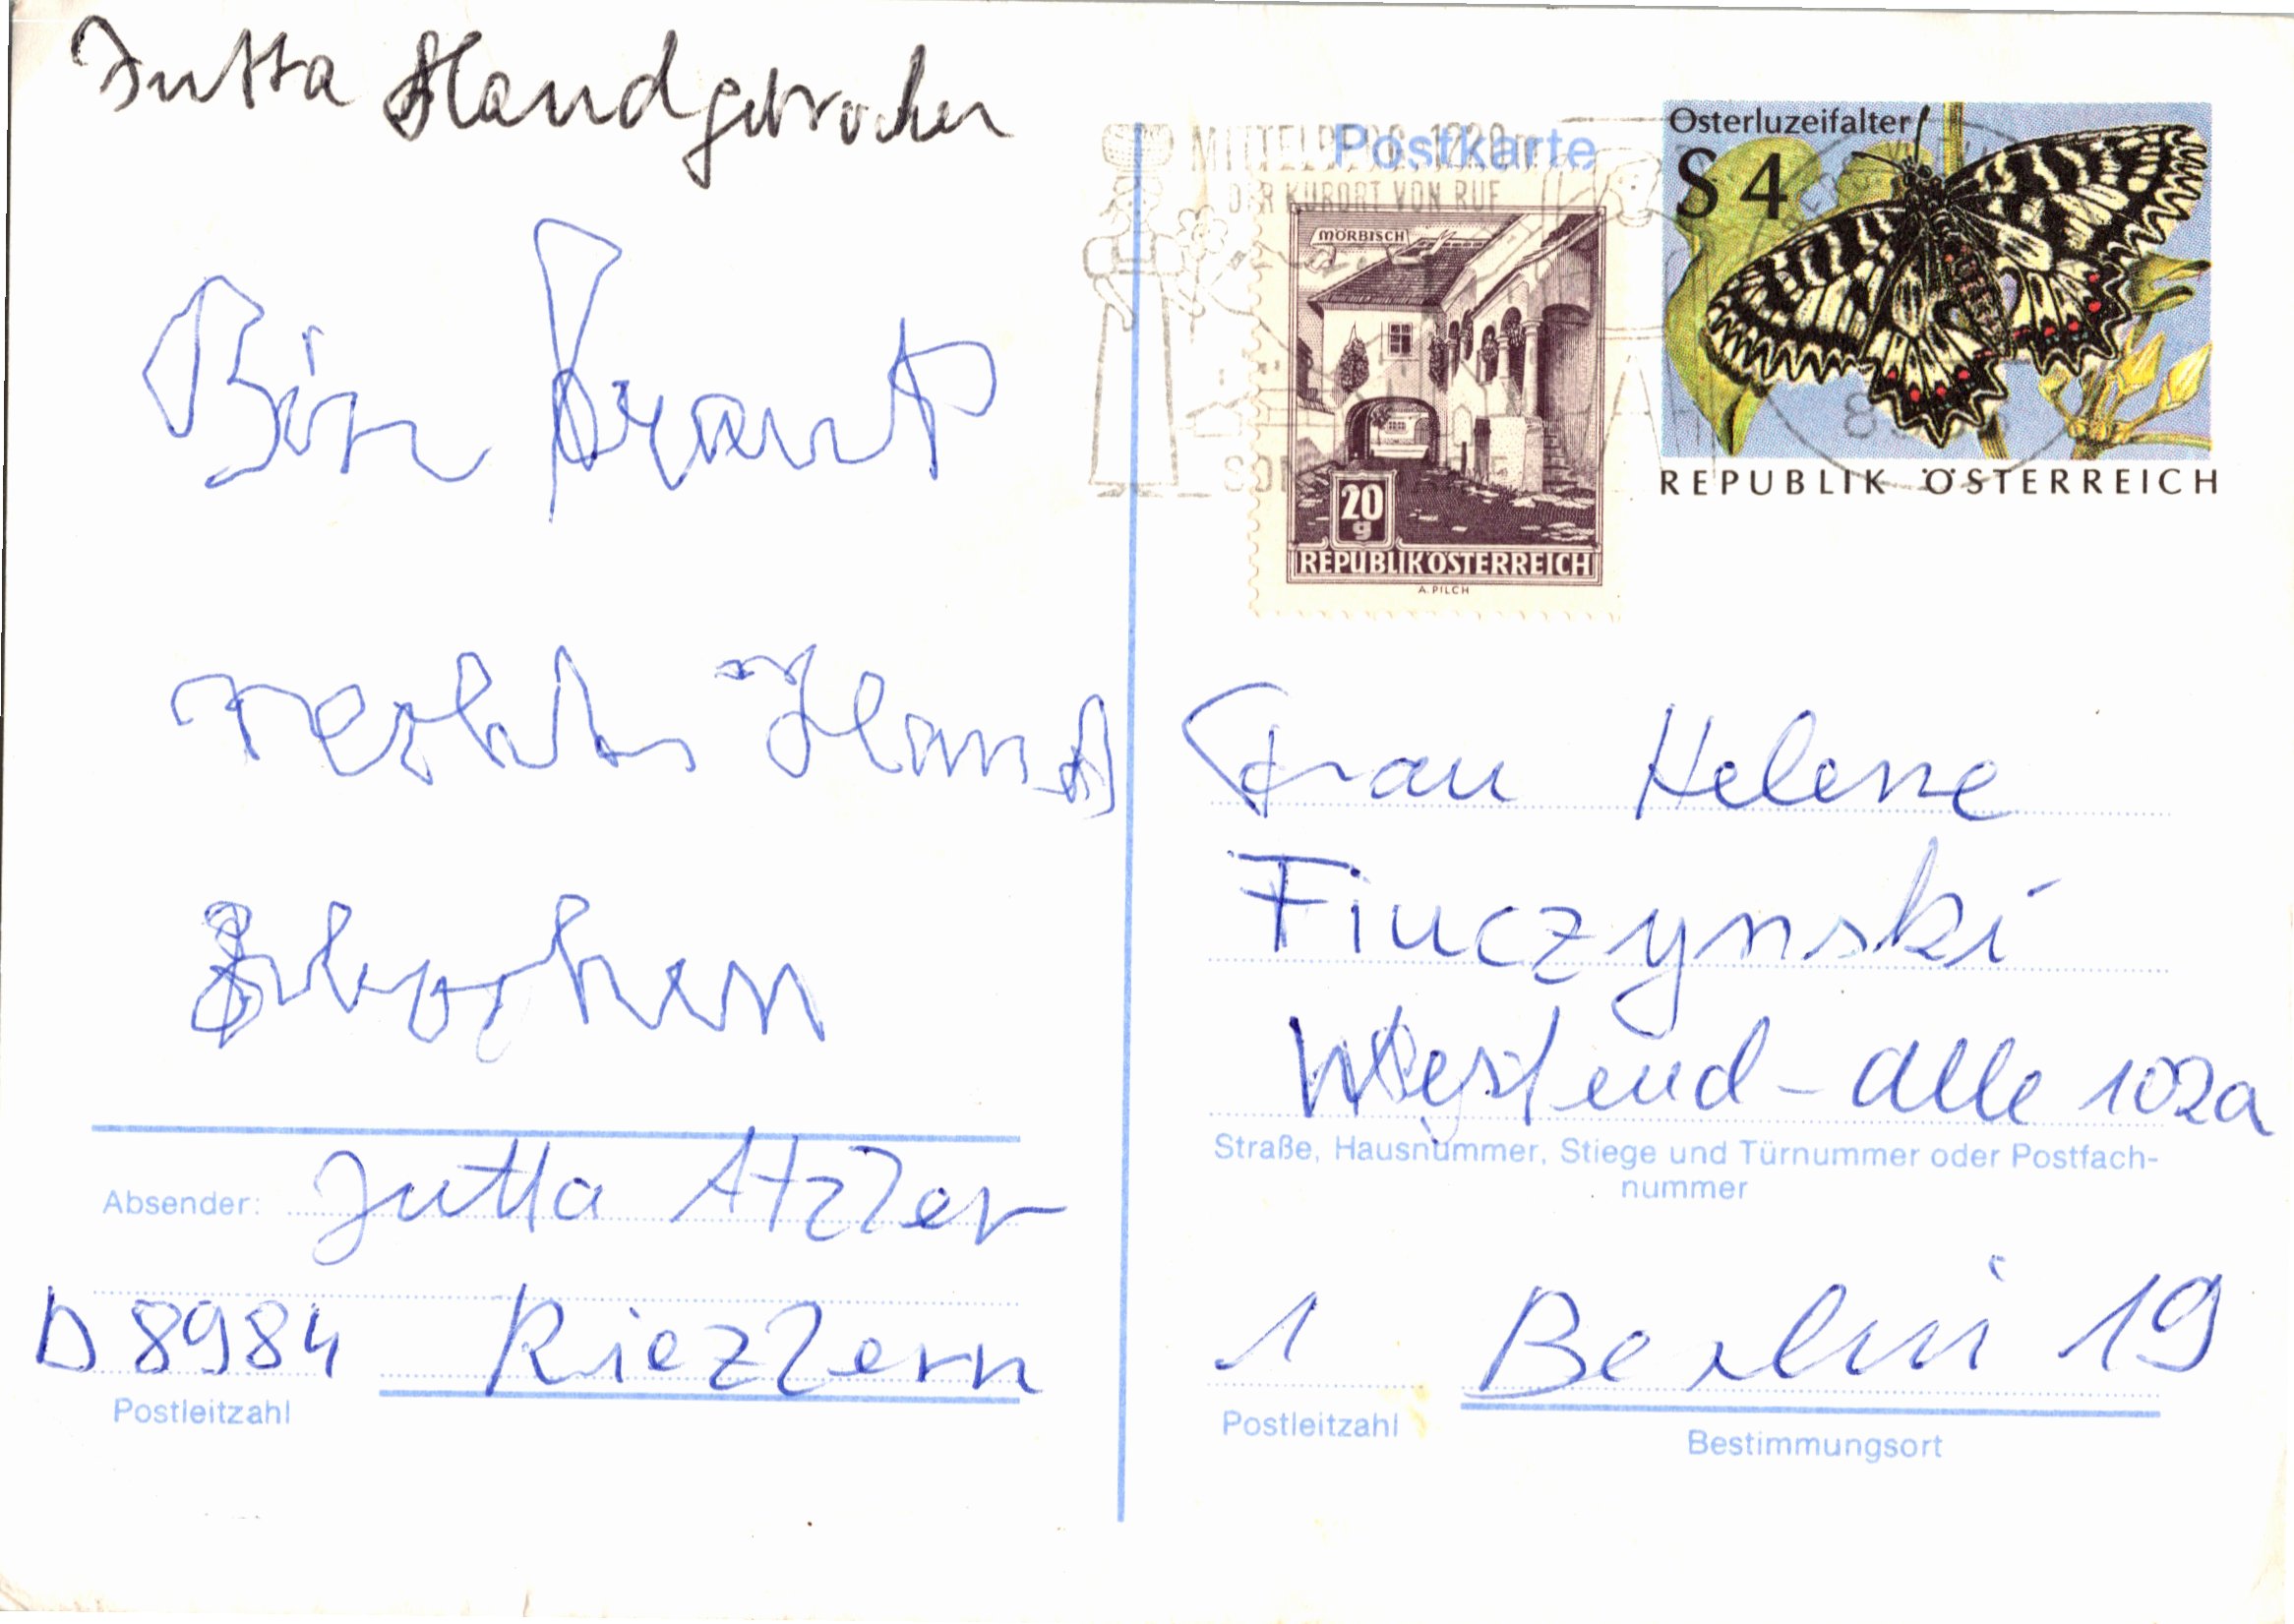 Jutta Handgebrochen
Bin krank
rechte Hand
gebrochen
Absender: Jutta Atzler
D 8984 Riezlern
Postleitzahl
Postkarte
MITTELBERG 1220m
DER KURORT VON RUF
MÖRBISCH
20
g
REPUBLIK ÖSTERREICH
A. PILCH
Osterluzeifalter
S 4
REPUBLIK ÖSTERREICH
Frau Helene
Fiuczynski
Westend-alle 102a
Straße, Hausnummer, Stiege und Türnummer oder Postfach-
nummer
1 Berlin 19
Postleitzahl
Bestimmungsort